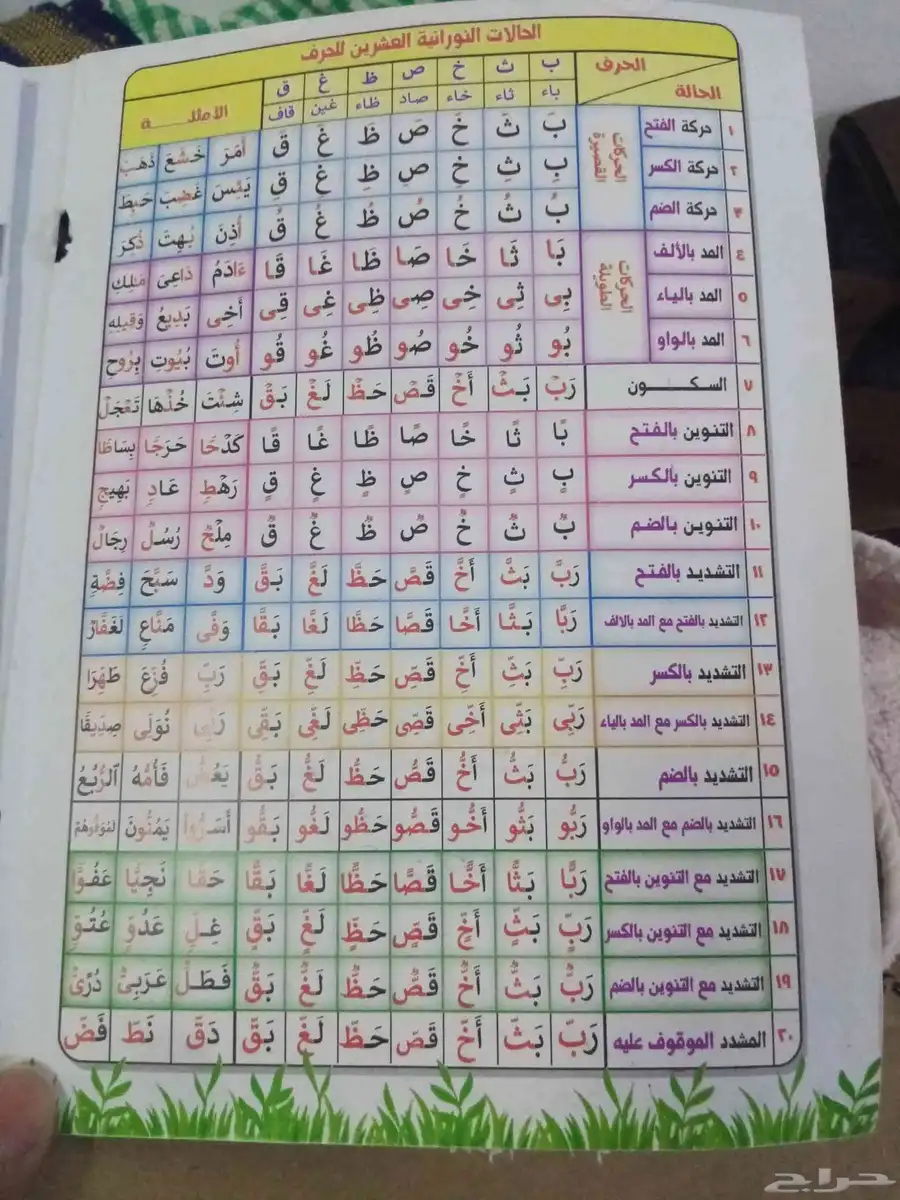 الحالات النورانية العشرين للحرف
الحرف ب ث خ ص ظ غ ق
الحالة باء ثاء خاء صاد ظاء غين قاف الأمثلـــــة
الحركات القصيرة
١ حركة الفتح بَ ثَ خَ صَ ظَ غَ قَ أَمَرَ خَشَعَ ذَهَبَ
٢ حركة الكسر بِ ثِ خِ صِ ظِ غِ قِ يَئِسَ غَضِبَ حَبِطَ
٣ حركة الضم بُ ثُ خُ صُ ظُ غُ قُ أُذِنَ بُهِتَ ذُكِرَ
الحركات الطويلة
٤ المد بالألف بَا ثَا خَا صَا ظَا غَا قَا ءَادَمُ دَاعِىَ مَٰلِكِ
٥ المد بالياء بِى ثِى خِى صِى ظِى غِى قِى أَخِى بَدِيعُ وَقِيلِهِ
٦ المد بالواو بُو ثُو خُو صُو ظُو غُو قُو أُوتَ بُيُوتِ بِرُوحِ
٧ السكـــــون رَبْ بَثْ أَخْ قَصْ حَظْ لَغْ بَقْ شِئْتَ خُذْهَا تَعْجَلْ
٨ التنوين بالفتح بًا ثًا خًا صًا ظًا غًا قًا كَدْحًا حَرَجًا بِسَاطًا
٩ التنوين بالكسر بٍ ثٍ خٍ صٍ ظٍ غٍ قٍ رَهْطٍ عَادٍ بَهِيجٍ
١٠ التنوين بالضم بٌ ثٌ خٌ صٌ ظٌ غٌ قٌ مِلْحٌ رُسُلٌ رِجَالٌ
١١ التشديد بالفتح رَبَّ بَثَّ أَخَّ قَصَّ حَظَّ لَغَّ بَقَّ وَدَّ سَبَّحَ فِضَّةِ
١٢ التشديد بالفتح مع المد بالالف رَبَّا بَثَّا أَخَّا قَصَّا حَظَّا لَغَّا بَقَّا وَفَّى مَنَّاعٍ لَغَفَّارٌ
١٣ التشديد بالكسر رَبِّ بَثِّ أَخِّ قَصِّ حَظِّ لَغِّ بَقِّ رَبِّ فُزِّعَ طَهِّرَا
١٤ التشديد بالكسر مع المد بالياء رَبِّى بَثِّى أَخِّى قَصِّى حَظِّى لَغِّى بَقِّى رَبِّى نُوَلِّى صِدِّيقًا
١٥ التشديد بالضم رَبُّ بَثُّ أَخُّ قَصُّ حَظُّ لَغُّ بَقُّ يَعَضُّ فَأُمُّهُ ٱلرُّبُعُ
١٦ التشديد بالضم مع المد بالواو رَبُّو بَثُّو أَخُّو قَصُّو حَظُّو لَغُّو بَقُّو أَسَرُّوا يَمُنُّونَ لَمُوَفُّوهُمْ
١٧ التشديد مع التنوين بالفتح رَبًّا بَثًّا أَخًّا قَصًّا حَظًّا لَغًّا بَقًّا حَقًّا نَجِيًّا عَفُوًّا
١٨ التشديد مع التنوين بالكسر رَبٍّ بَثٍّ أَخٍّ قَصٍّ حَظٍّ لَغٍّ بَقٍّ غِلٍّ عَدُوٍّ عُتُوٍّ
١٩ التشديد مع التنوين بالضم رَبٌّ بَثٌّ أَخٌّ قَصٌّ حَظٌّ لَغٌّ بَقٌّ فَطَلٌّ عَرَبِىٌّ دُرِّىٌّ
٢٠ المشدد الموقوف عليه رَبّ بَثّ أَخّ قَصّ حَظّ لَغّ بَقّ دَقّ نَطّ فَضّ
حراج